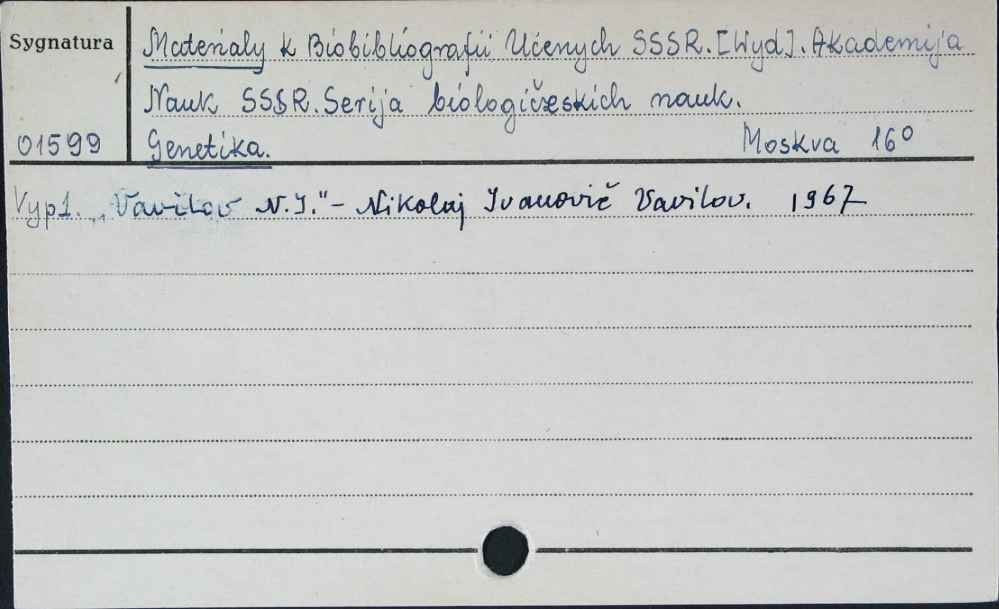 Sygnatura
Materialy k Biobibliografii Učenych SSSR. [Wyd]. Akademija
Nauk SSSR. Serija biologičeskich nauk.
01599 Genetika. Moskva 16°
Vyp1. „Vavilov N.I." – Nikolaj Ivanovič Vavilov. 1967